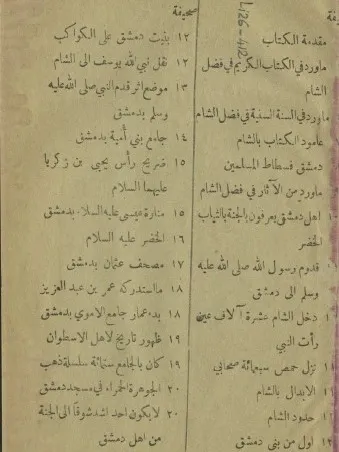 صحيفة
مقدمة الكتاب
ماورد في الكتاب الكريم في فضل
الشام
ماورد في السنة السنية في فضل الشام
عامود الكتاب بالشام
دمشق فسطاط المسلمين
ماورد من الآثار في فضل الشام
اهل دمشق يعرفون بالجنة بالثياب
الخضر
قدوم رسول الله صلى الله عليه
وسلم الى دمشق
دخل الشام عشرة آلاف عين
رأت النبي
نزل حمص سبعمائة صحابي
الابدال بالشام
حدود الشام
١٢ اول من بنى دمشق
صحيفة
١٢ بنيت دمشق على الكواكب
١٢ نقل نبي الله يوسف الى الشام
١٣ موضع اثر قدم النبي صلى الله عليه
وسلم بدمشق
١٤ جامع بني أمية بدمشق
١٥ ضريح رأس يحيى بن زكريا
عليهما السلام
١٥ منارة عيسى عليه السلام بدمشق
١٦ الخضر عليه السلام
١٧ مصحف عثمان بدمشق
١٨ ما استدركه عمر بن عبد العزيز
١٨ بدء عمار جامع الاموي بدمشق
١٩ ظهور تاريخ لاهل الاسطوان
١٩ كان بالجامع ستمائة سلسلة ذهب
٢٠ الجوهرة الحمراء في مسجد دمشق
٢٠ لايكون احد اشد شوقا الى الجنة
من اهل دمشق